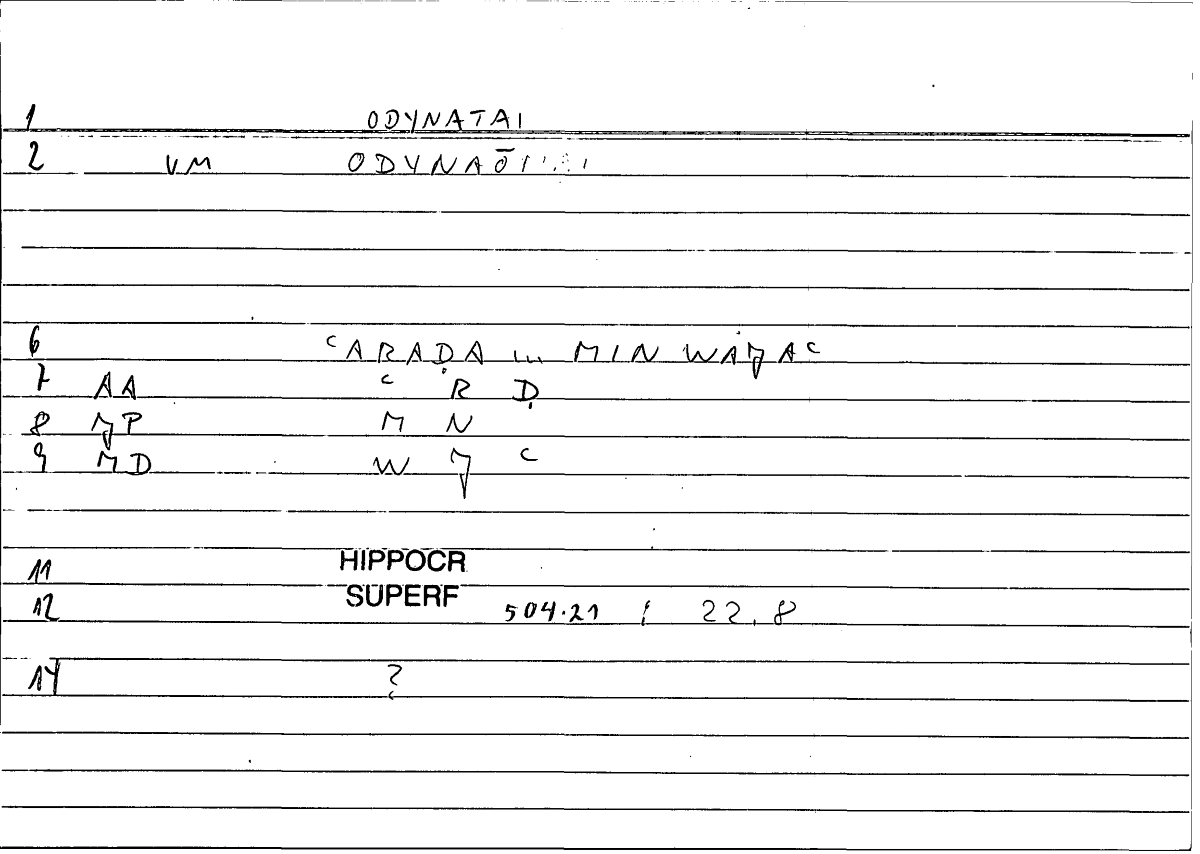 1 ODYNATAI
2 VM
6 ʿARAḌA ... MIN WAǦAʿ
7 AA ʿ R Ḍ
8 ǦP M N
9 MD W Ǧ ʿ
11 HIPPOCR
12 SUPERF 504.21 ; 22,8
14 ?